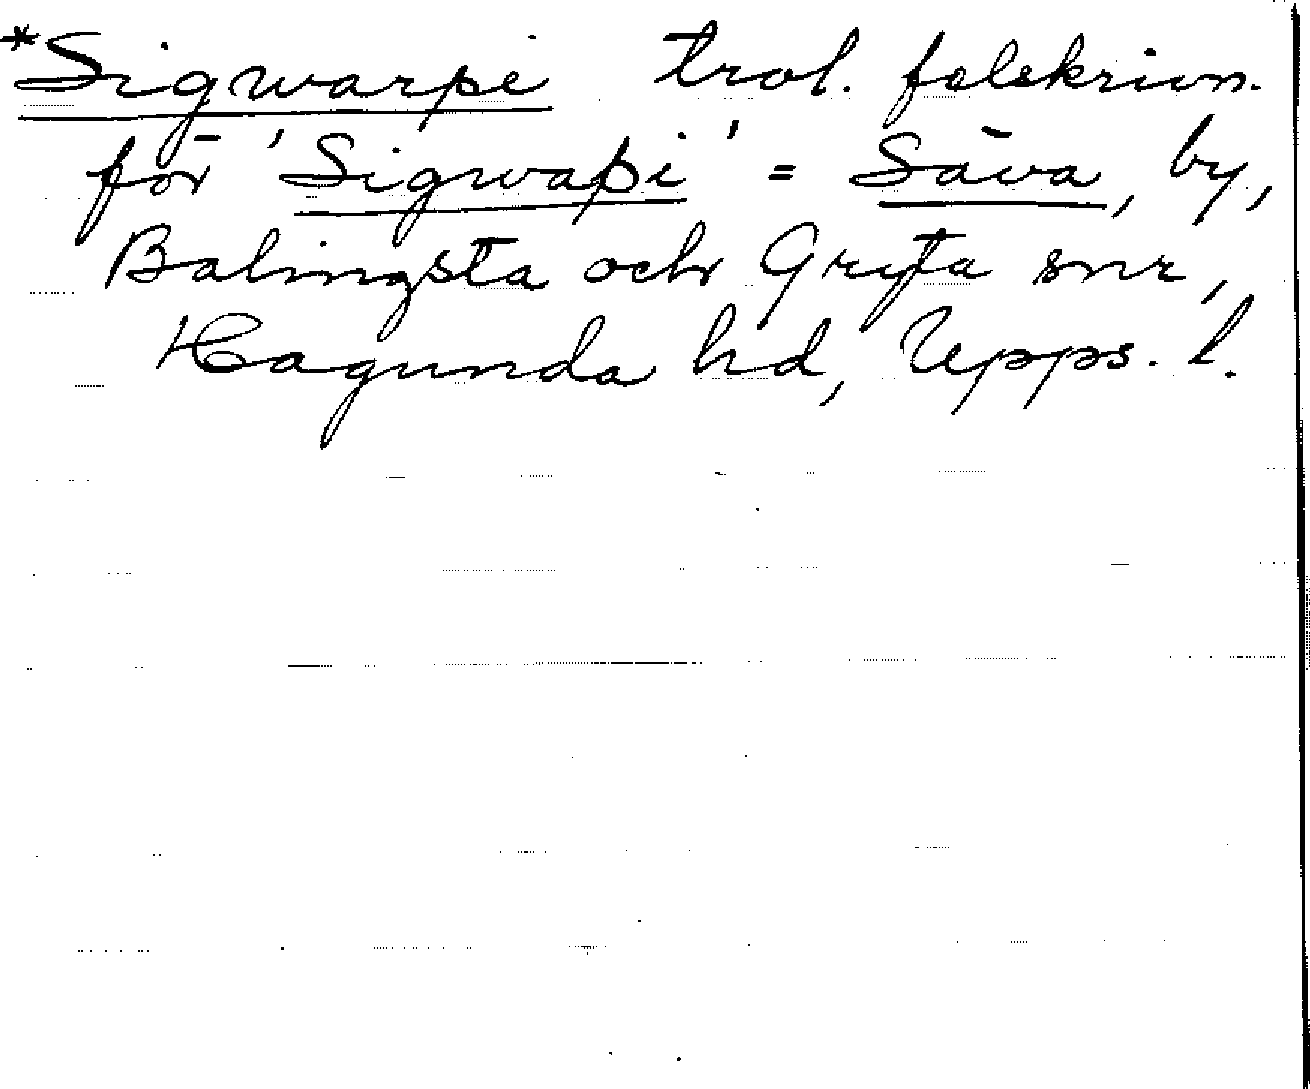 *Sigwarpe trol. felskrivn.
för 'Sigwaþi' = Säva, by,
Balingsta och Gryta snr,
Hagunda hd, Upps. l.